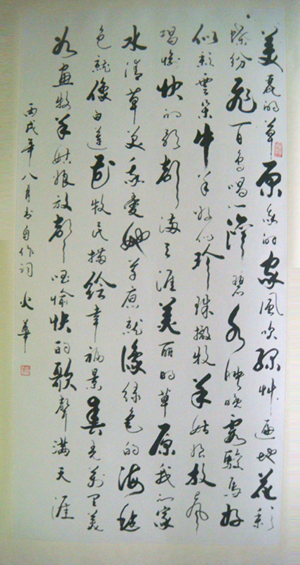 美丽的草原我的家风吹绿草遍地花彩
蝶纷飞百鸟唱一湾碧水映晚霞骏马好
似彩云朵牛羊好似珍珠撒牧羊姑娘放声
唱愉快的歌声满天涯美丽的草原我的家
水清草美我爱她草原就像绿色的海毡
包就像白莲花牧民描绘幸福景春光万里美
如画牧羊姑娘放声唱愉快的歌声满天涯
丙戌年八月书自作词 火华